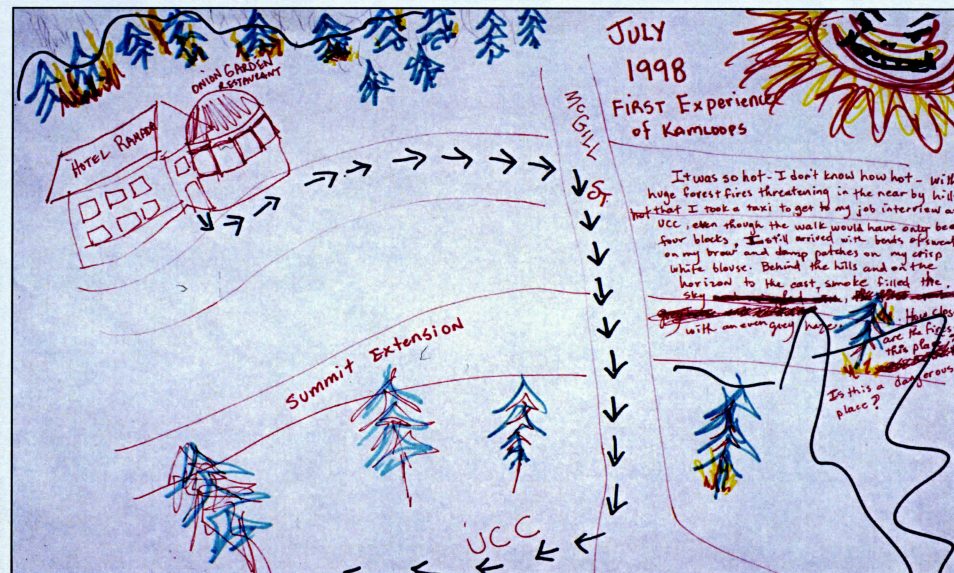 JULY
1998
FIRST Experience
of KAMLOOPS
ONION GARDEN
RESTAURANT
HOTEL RAMADA
McGILL
ST.
It was so hot - I don't know how hot - with
huge forest fires threatening in the near by hills
hot that I took a taxi to get to my job interview at
UCC, even though the walk would have only been
four blocks, I still arrived with beads of sweat
on my brow and damp patches on my crisp
white blouse. Behind the hills and on the
horizon to the east, smoke filled the
sky
with an even grey haze.
How close
are the fires
this place?
Is this a dangerous
place?
Summit Extension
UCC